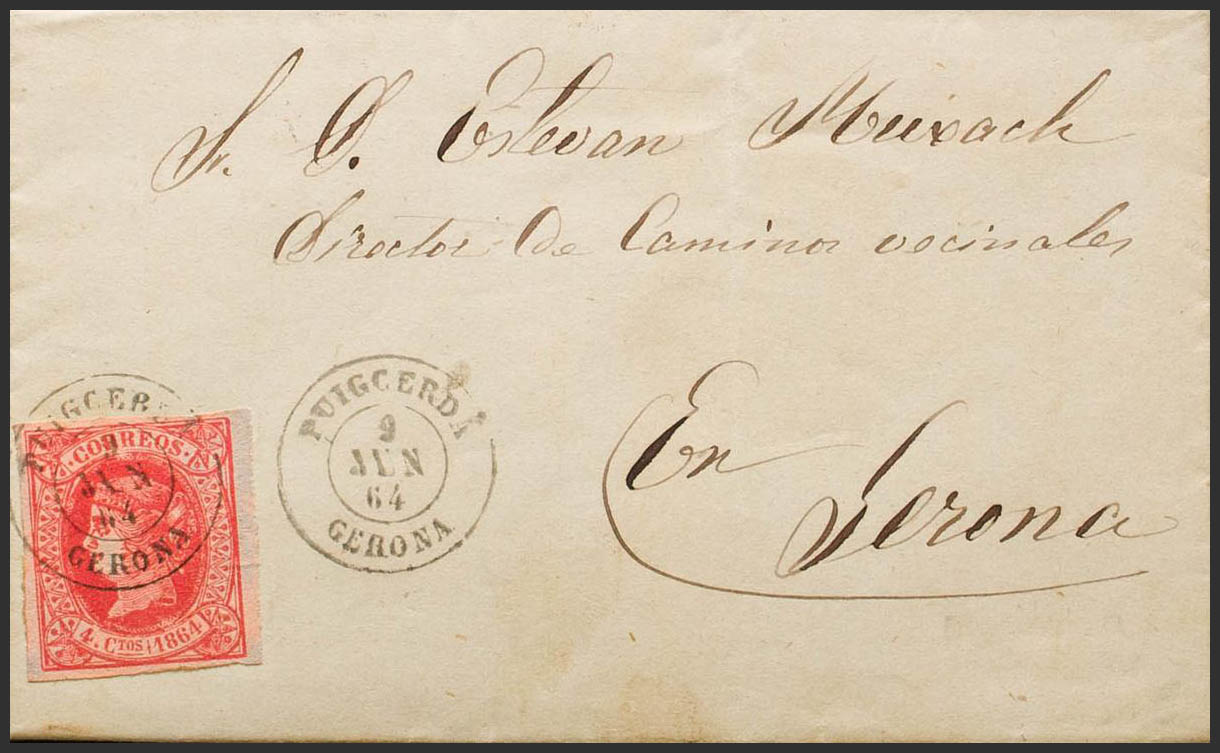 S. D. Estevan Muxach
Director de Caminos vecinales
PUIGCERDÁ
9
JUN
64
GERONA
En Gerona
PUIGCERDÁ
9
JUN
64
GERONA
·CORREOS·
4. CTOS 1864